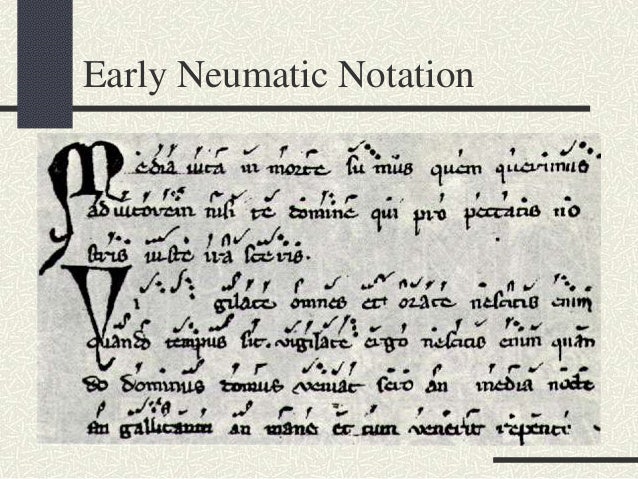 Early Neumatic Notation
Media uita in morte sumus quem querimus
adiutorem nisi te domine qui pro peccatis no
stris iuste irasceris.
Vigilate omnes et orate nescitis enim
quando tempus sit. vigilate ergo nescitis enim quan
do dominus domus veniat sero an media nocte
an gallicantu an mane et cum venerit repente